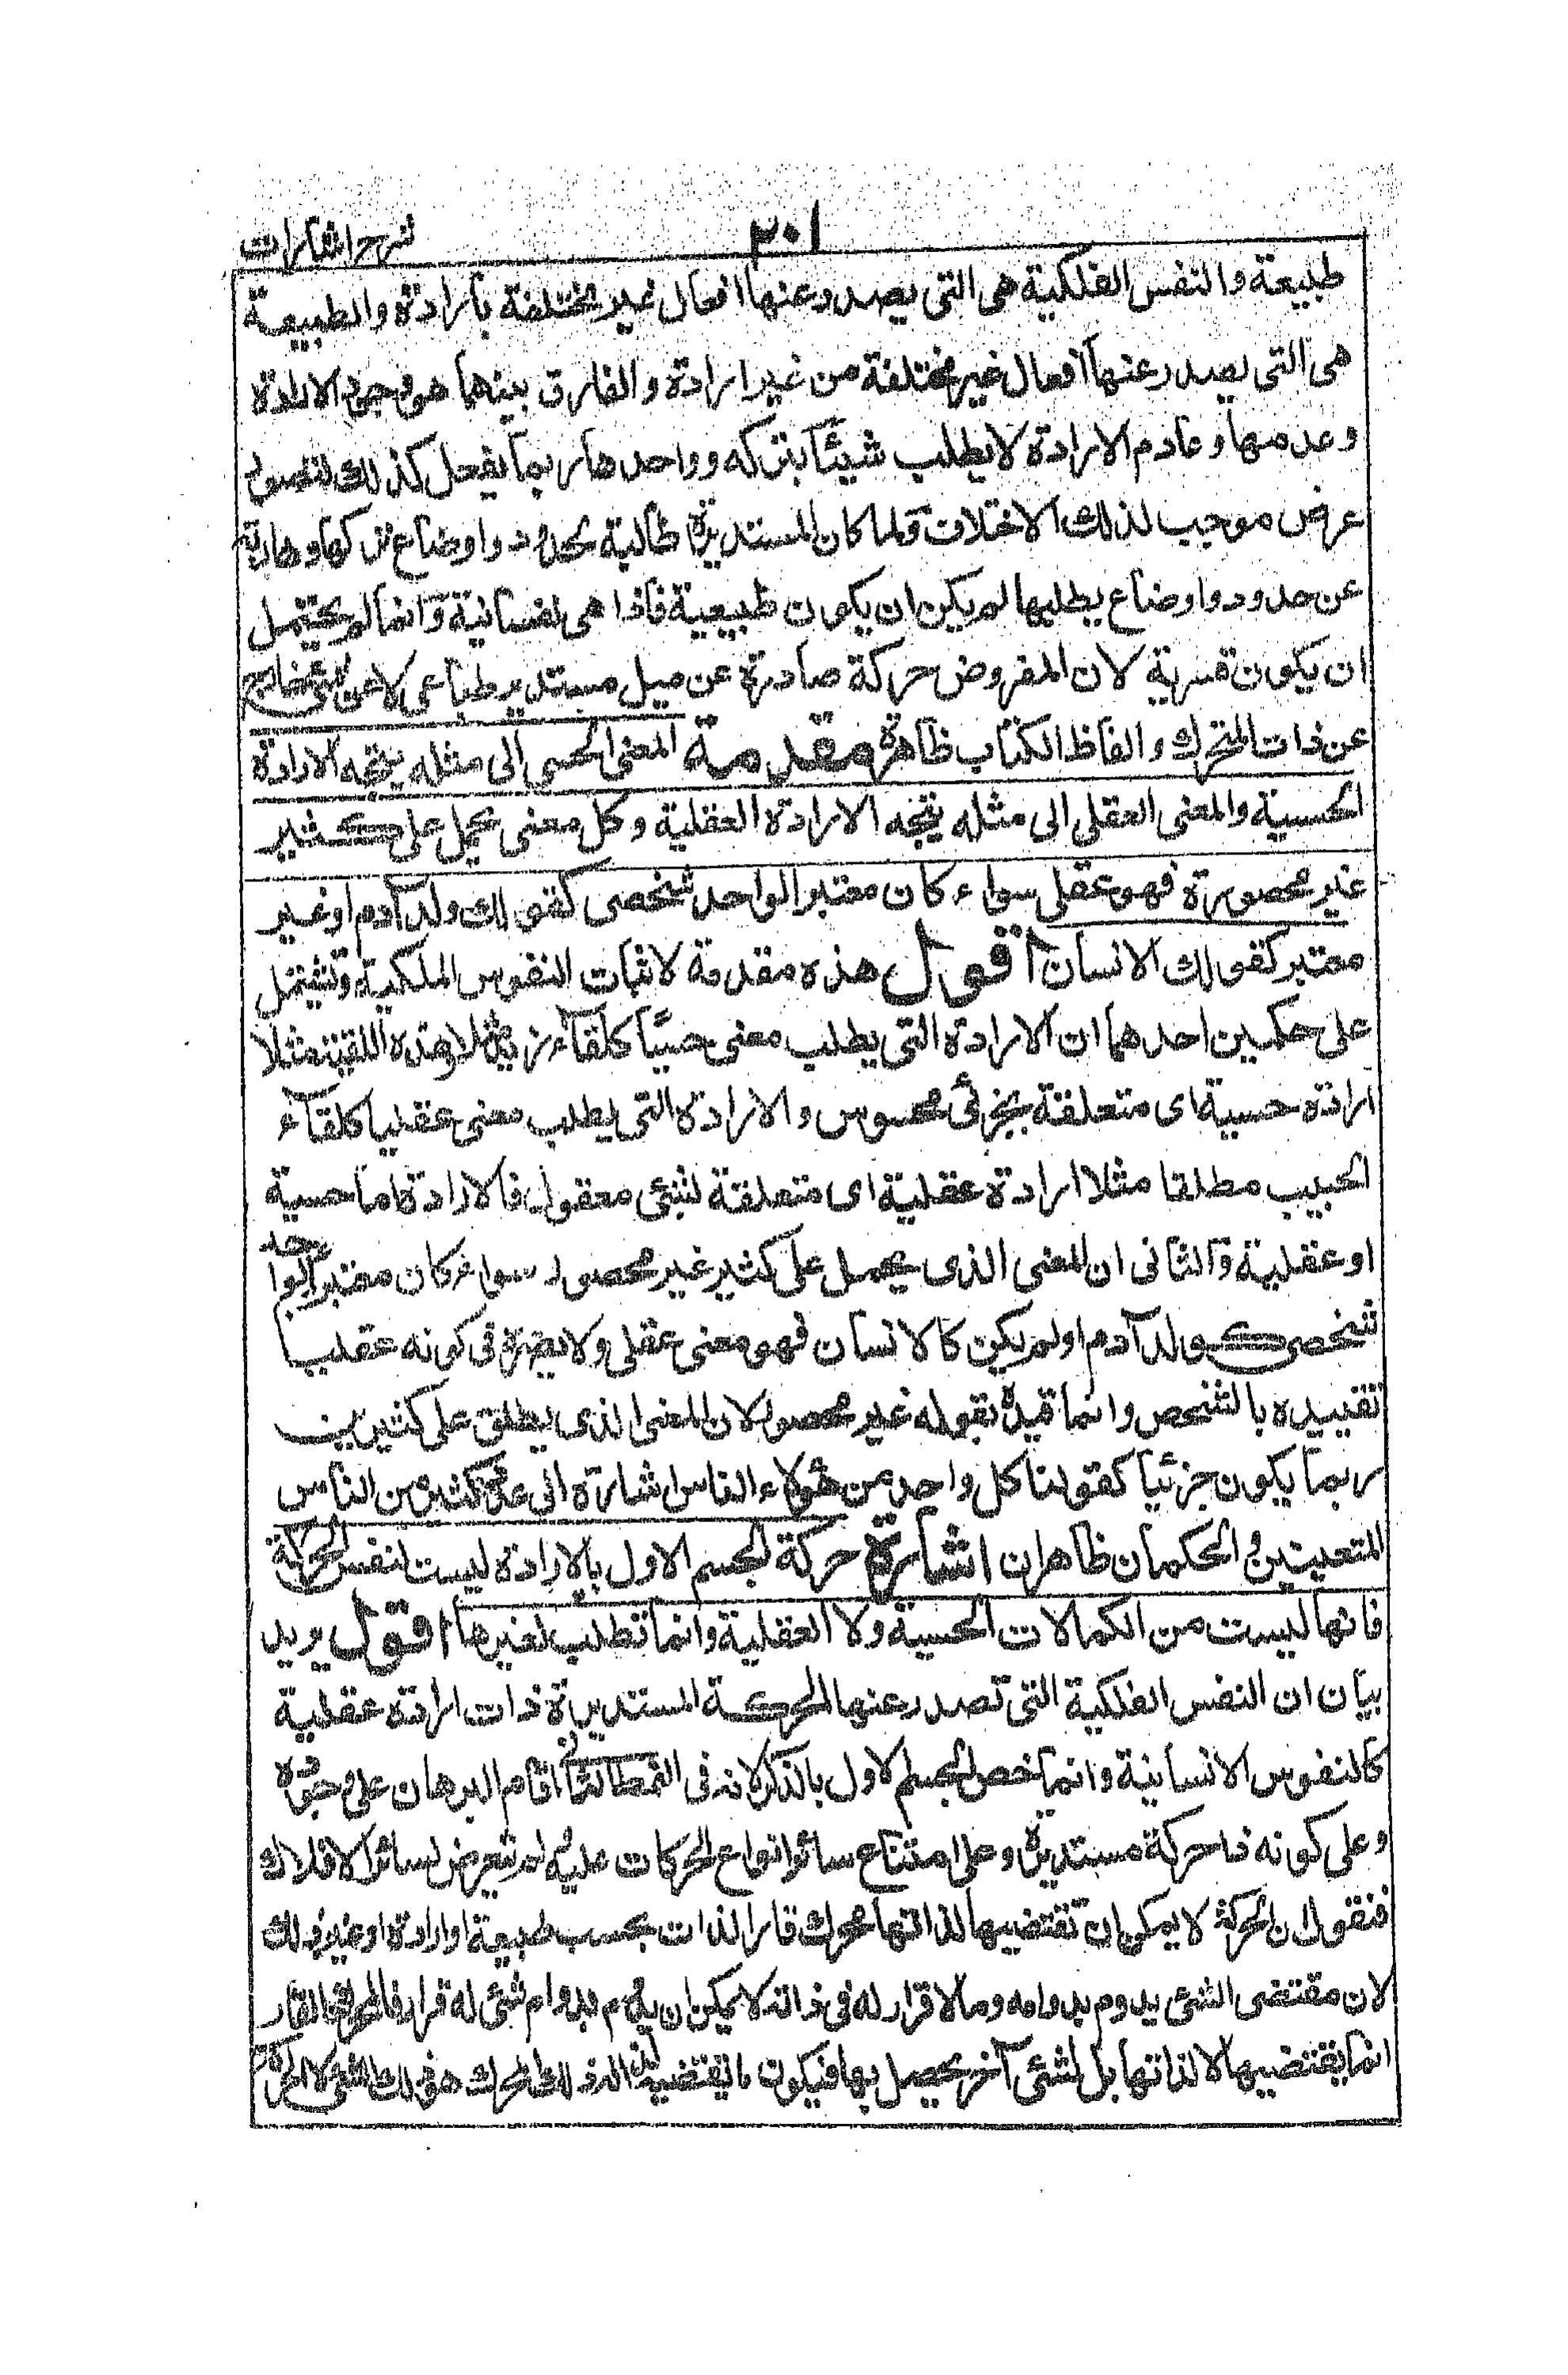 ٢٠١
شرح اشارات
طبيعة والنفس الفلكية هى التى يصدر عنها افعال غير مختلفة بارادة والطبيعة
هى التى يصدر عنها افعال غير مختلفة من غير ارادة والفارق بينهما هو وجود الارادة
وعدمها وعادم الارادة لا يطلب شيئا بتركه وواجدها ربما يفعل كذلك لتصور
عرض موجب لذلك الاختلاف ولما كان المستديرة طالبة لحدود واوضاع تركها وهاربة
عن حدود واوضاع يطلبها لم يكن ان يكون طبيعية فاذا هى نفسانية وانما لم يحتمل
ان يكون قسرية لان المفروض حركة صادرة عن ميل مستدير طباعى لا عن شئ خارج
عن ذات المتحرك والفاظ الكتاب ظاهرة مقدمة المعنى الحسى الى مثله يتجه الارادة
الحسية والمعنى العقلى الى مثله يتجه الارادة العقلية وكل معنى يحمل على كثير
غير محصورة فهو عقلى سواء كان معتبرا لواحد شخصى كقولك ولد آدم او غير
معتبر كقولك الانسان اقول هذه مقدمة لاثبات النفوس الملكية وتشتمل
على حكمين احدهما ان الارادة التى يطلب معنى حسيا كلقاء زيد مثلا هذه اللقية مثلا
ارادة حسية اى متعلقة بجزئى محسوس والارادة التى يطلب معنى عقليا كلقاء
الحبيب مطلقا مثلا ارادة عقلية اى متعلقة لشئ معقول فالارادة اما حسية
او عقلية والثانى ان المعنى الذى يحمل على كثير غير محصور سواء كان معتبرا لواحد
شخصى كولد آدم او لم يكن كالانسان فهو معنى عقلى ولا يضره فى كونه عقليا
تقييده بالشخص وانما قيده بقوله غير محصور لان المعنى الذى يطلق على كثيرين
ربما يكون جزئيا كقولنا كل واحد من هؤلاء الناس اشارة الى عدة كثيرين من الناس
المتعينين والحكمان ظاهران اشارة حركة الجسم الاول بالارادة ليست لنفس الحركة
فانها ليست من الكمالات الحسية ولا العقلية وانما تطلب لغيرها اقول يريد
بيان ان النفس الفلكية التى تصدر عنها الحركة المستديرة ذات ارادة عقلية
كالنفوس الانسانية وانما خص الجسم الاول بالذكر لانه فى النمط الثانى اقام البرهان على وجوده
وعلى كونه ذا حركة مستديرة وعلى امتناع سائر انواع الحركات عليه ولم يتعرض لسائر الافلاك
فنقول ان الحركة لا يمكن ان تقتضيها لذاتها محرك قار الذات بحسب طبيعة او ارادة او غير ذلك
لان مقتضى الشئ يدوم بدوامه وما لا قرار له فى ذاته لا يمكن ان يدوم بدوام شئ له قرار فالمحرك القار
انما يقتضيها لا لذاتها بل لشئ آخر يحصل بها فيكون ما يقتضيه لذاته ذلك المحرك هو ذلك الشئ لا الحركة